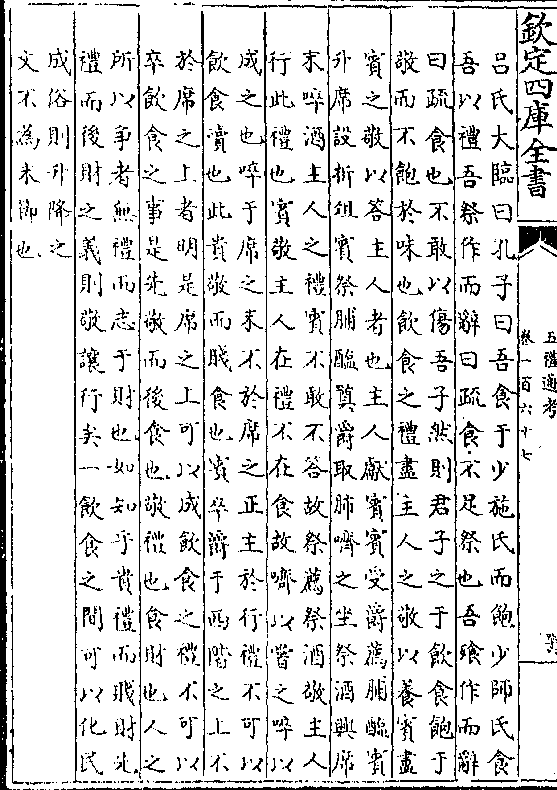 欽定四庫全書
五禮通考
卷一百六十七
呂氏大臨曰孔子曰吾食于少施氏而飽少師氏食
吾以禮吾祭作而辭曰疏食不足祭也吾飧作而辭
曰疏食也不敢以傷吾子然則君子之于飲食飽于
敬而不飽於味也飲食之禮盡主人之敬以養賓盡
賓之敬以答主人者也主人獻賓賓受爵薦脯醢賓
升席設折俎賓祭脯醢奠爵取肺嚌之坐祭酒興席
末啐酒主人之禮賓不敢不答故祭薦祭酒敬主人
行此禮也賓敬主人在禮不在食故嚌以嘗之啐以
成之也啐于席之末不於席之正主於行禮不可以
飲食瀆也此貴敬而賤食也賓卒爵于西階之上不
於席之上者明是席之上可以成飲食之禮不可以
卒飲食之事是先敬而後食也敬禮也食財也人之
所以爭者無禮而志于財也如知乎貴禮而賤財先
禮而後財之義則敬讓行矣一飲食之間可以化民
成俗則升降之
文不為末節也